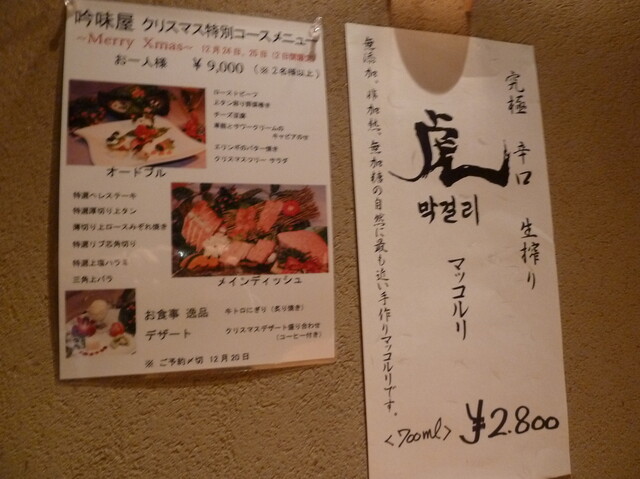 吟味屋 クリスマス特別コースメニュー
～Merry Xmas～ 12月24日、25日
お一人様 ￥9,000 （※2名様以上）
ローストビーフ
チーズ豆腐
キャビアのせ
エリンギのバター焼き
クリスマスツリー サラダ
オードブル
特選ヘレステーキ
特選厚切り上タン
薄切り上ロースみぞれ焼き
特選リブ芯角切り
特選上塩ハラミ
三角上バラ
メインディッシュ
お食事 逸品 牛トロにぎり（炙り焼き）
デザート クリスマスデザート盛り合わせ
（コーヒー付き）
※ ご予約〆切 12月20日
究極 辛口 生搾り
虎
막걸리
マッコルリ
無添加、非加熱、無加糖の自然に最も近い手作りマッコルリです。
<700ml> ¥2.800